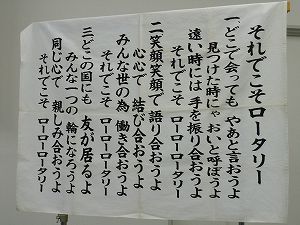 それでこそロータリー
一、どこで会っても やあと言おうよ
見つけた時にゃ おーいと呼ぼうよ
遠い時には 手を振り合おうよ
それでこそ ローローロータリー
二、笑顔笑顔で 語り合おうよ
心心で 結び合おうよ
みんな世の為 働き合おうよ
それでこそ ローローロータリー
三、どこの国にも 友が居るよ
みんな一つの 輪になろうよ
同じ心で 親しみ合おうよ
それでこそ ローローロータリー